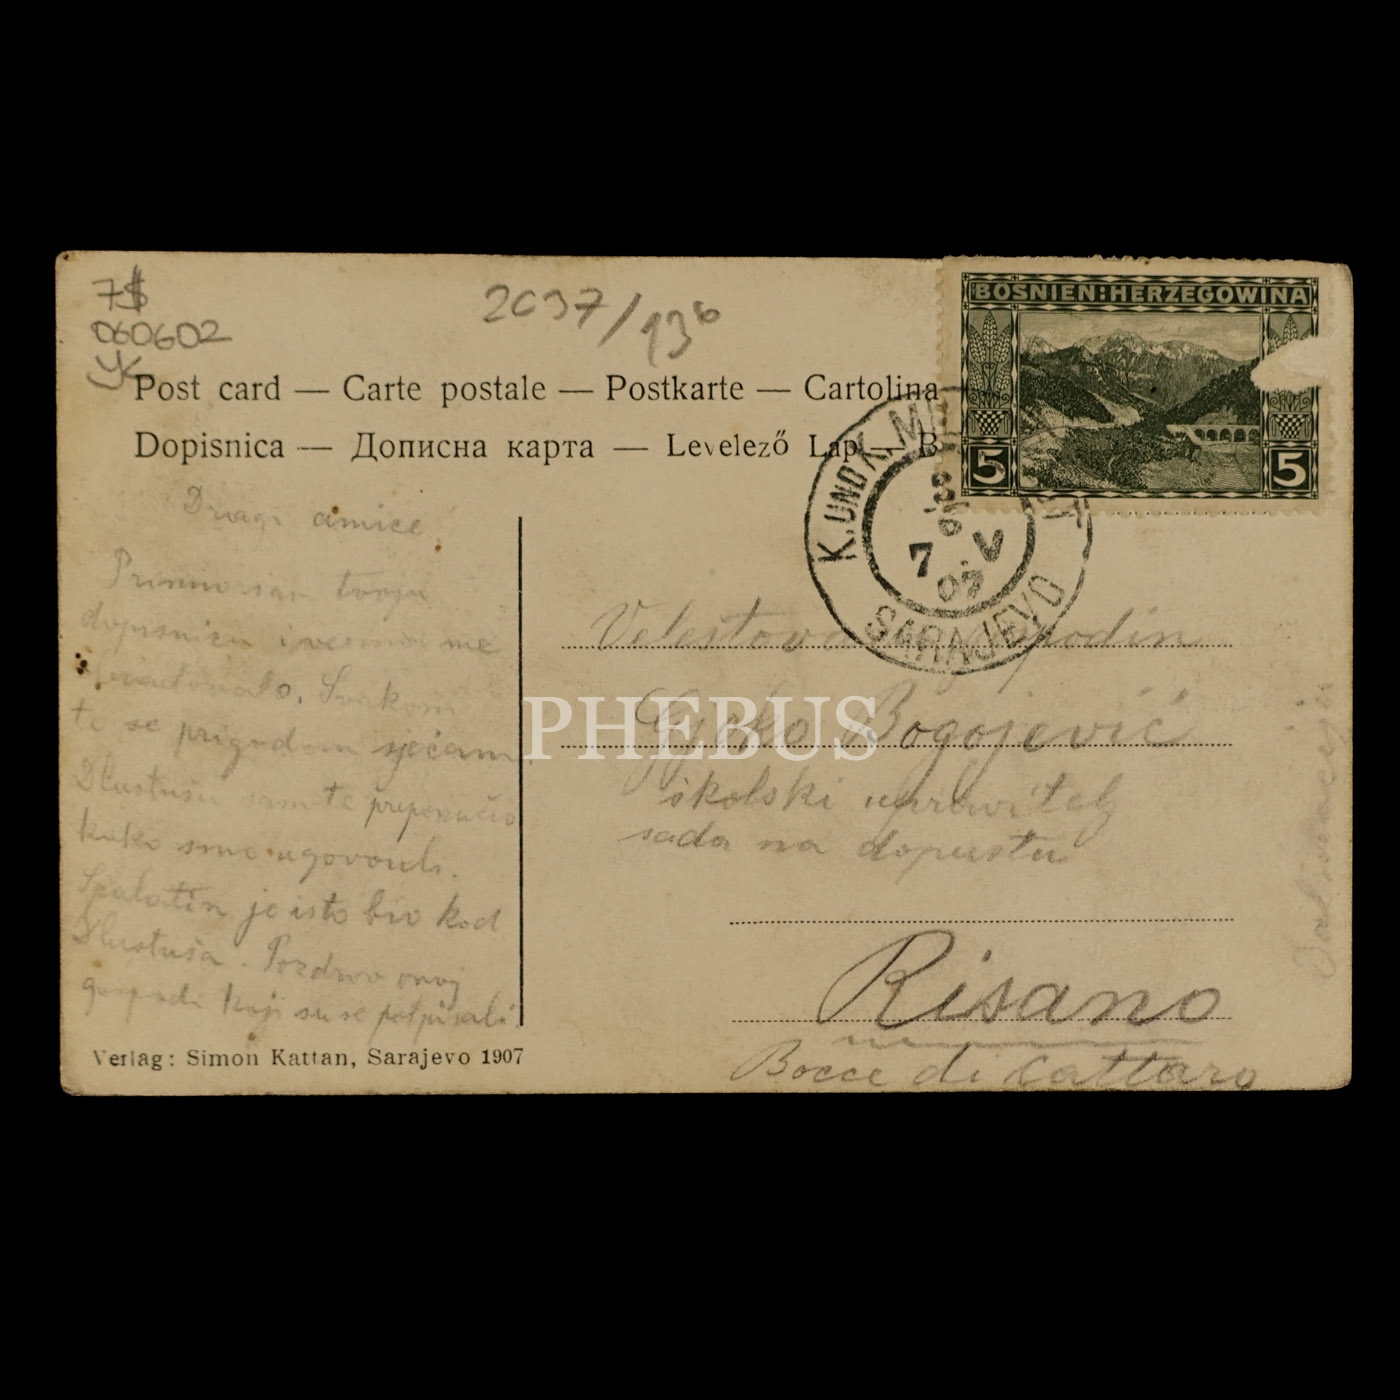 7$
060602
2637/136
Post card — Carte postale — Postkarte — Cartolina
Dopisnica — Дописна карта — Levelező Lap — B
BOSNIEN-HERZEGOWINA
5 5
K. UND K. MI
7 V
07
SARAJEVO
Dragi amice
Primio sam tvoju
dopisnicu i veoma me
obradovalo. Svakom
te se prigodom sjećam
Dlustušu sam te preporučio
kako smo ugovorili.
Spalatin je isto bio kod
Dlustuša. Pozdrav onoj
gospodi koji su se potpisali.
Gjoko Bogojević
školski upravitelj
sada na dopustu
Risano
Bocce di Cattaro
Dalmacija
Verlag: Simon Kattan, Sarajevo 1907
PHEBUS